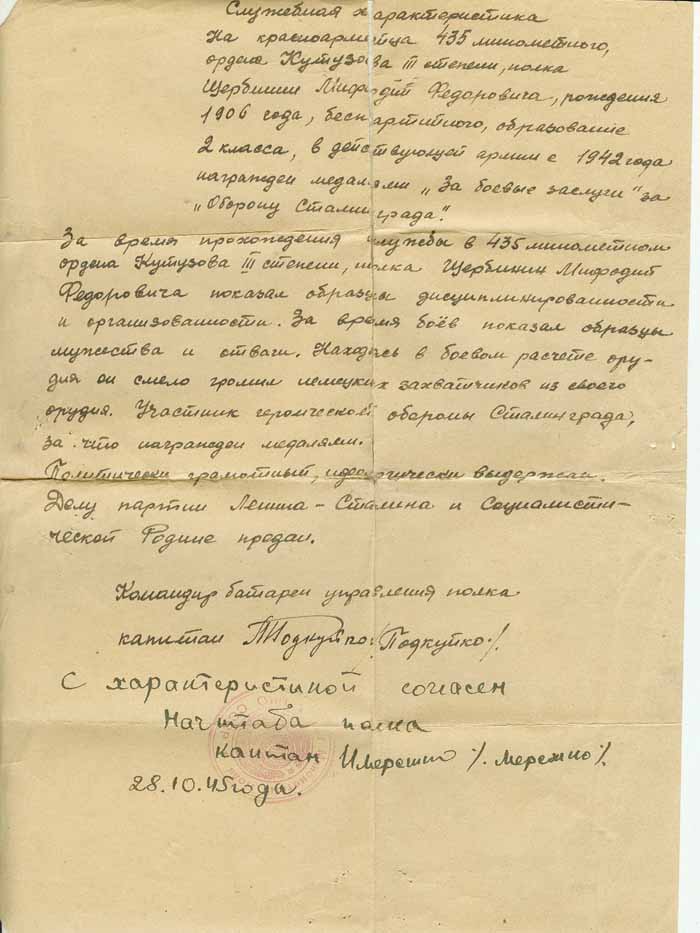 Служебная характеристика
На красноармейца 435 минометного,
ордена Кутузова III степени, полка
Щербинин Мифодит Федоровича, рождения
1906 года, беспартийного, образование
2 класса, в действующей армии с 1942 года
награжден медалями „За боевые заслуги" за
„Оборону Сталинграда".
За время прохождения службы в 435 минометном
ордена Кутузова III степени, полка Щербинин Мифодит
Федоровича показал образцы дисциплинированности
и организованности. За время боёв показал образцы
мужества и отваги. Находясь в боевом расчете ору-
дия он смело громил немецких захватчиков из своего
орудия. Участник героической обороны Сталинграда,
за что награжден медалями.
Политически грамотный, идеологически выдержан.
Делу партии Ленина – Сталина и Социалисти-
ческой Родине предан.
Командир батареи управления полка
капитан Подкуйко /Подкуйко./.
С характеристикой согласен
Нач штаба полка
капитан Мережко /. Мережко /.
28.10.45 года.